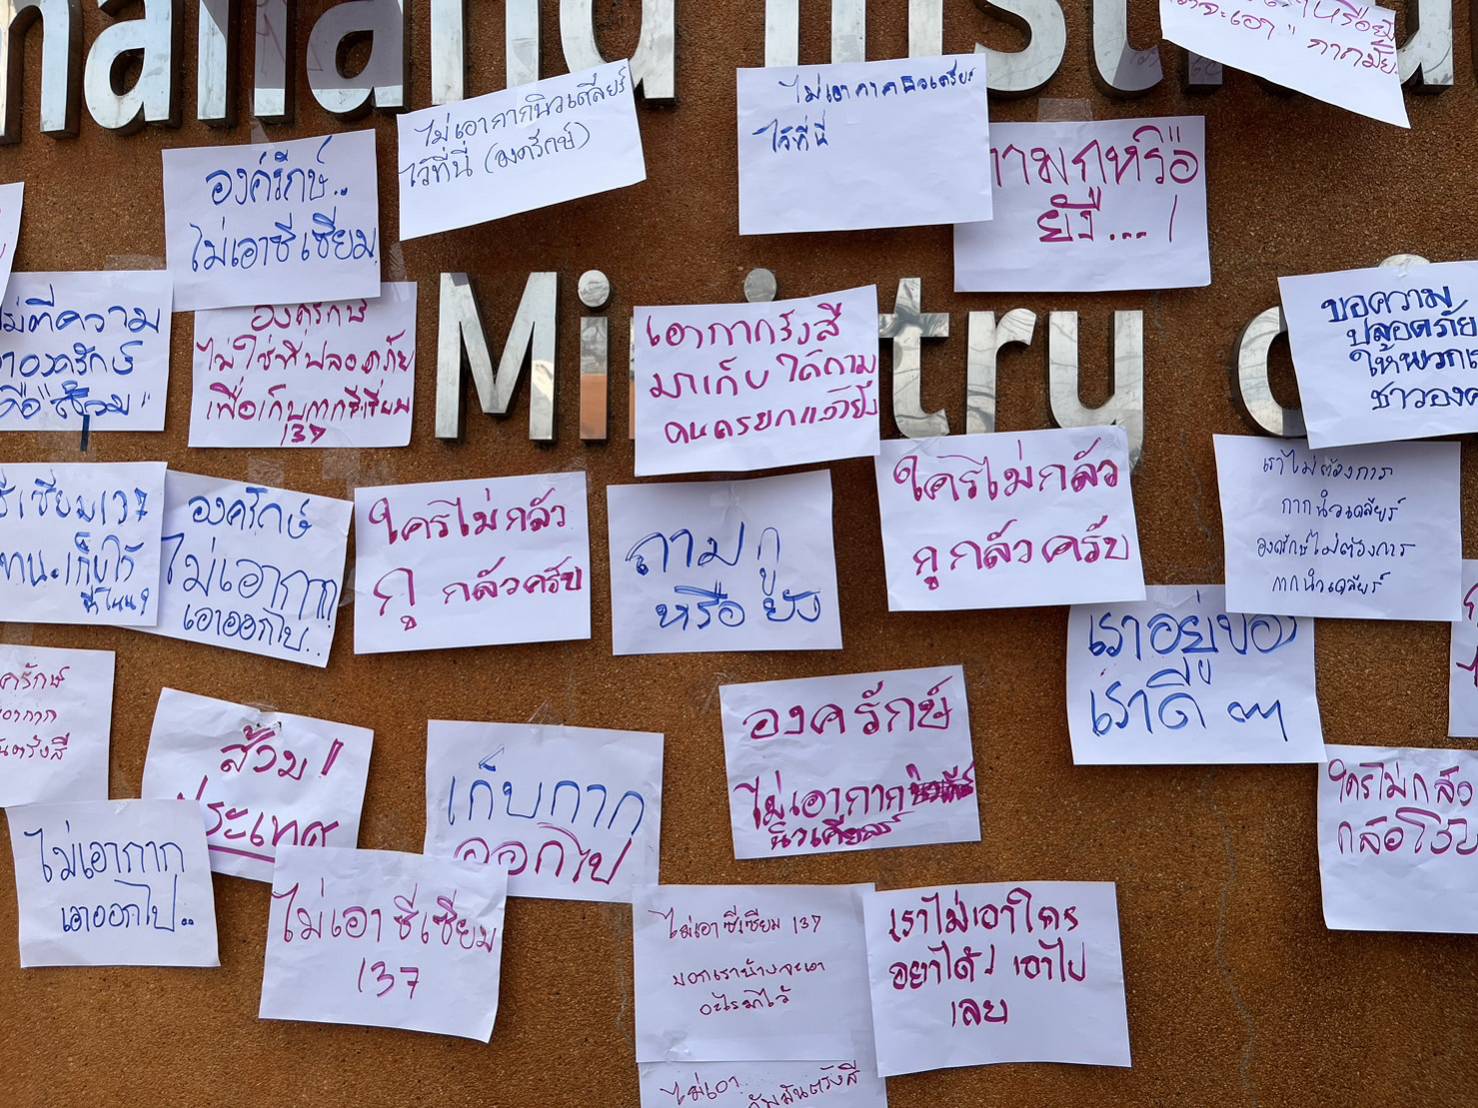 ไม่เอากากนิวเคลียร์
ไว้ที่นี่ (องครักษ์)
ไม่เอากากนิวเคลียร์
ไว้ที่นี่
องค์รักษ์..
ไม่เอาซีเซี่ยม
ถามกูหรือ
ยัง....!
Ministry
ความ
องครักษ์
"ส้วม"
องครักษ์
ไม่ใช่ที่ปลอดภัย
เพื่อเก็บกากซีเซี่ยม
137
เอากากรังสี
มาเก็บ ได้ถาม
คนครยกแล้วยัง
ขอความ
ปลอดภัย
ให้พวกเ
ชาวองค
ซีเซี่ยม137
เก็บไว้
องครักษ์
ไม่เอากาก
เอาออกไป..
ใครไม่กลัว
กู กลัวครับ
ถามกู
หรือ ยัง
ใครไม่กลัว
กูกลัวครับ
เราไม่ต้องการ
กากนิวเคลียร์
องครักษ์ไม่ต้องการ
กากนิวเคลียร์
เราอยู่ของ
เราดี ๆ
ส้วม!
ประเทศ
เก็บกาก
ออกไป
องครักษ์
ไม่เอากาก
นิวเคลียร์
ใครไม่กลัว
ไม่เอากาก
เอาออกไป..
ไม่เอาซีเซียม
137
ไม่เอาซีเซียม 137
บอกเราบ้างจะเอา
อะไรมาไว้
เราไม่เอาใคร
อยากได้! เอาไป
เลย
ไม่เอา
กัมมันตรังสี